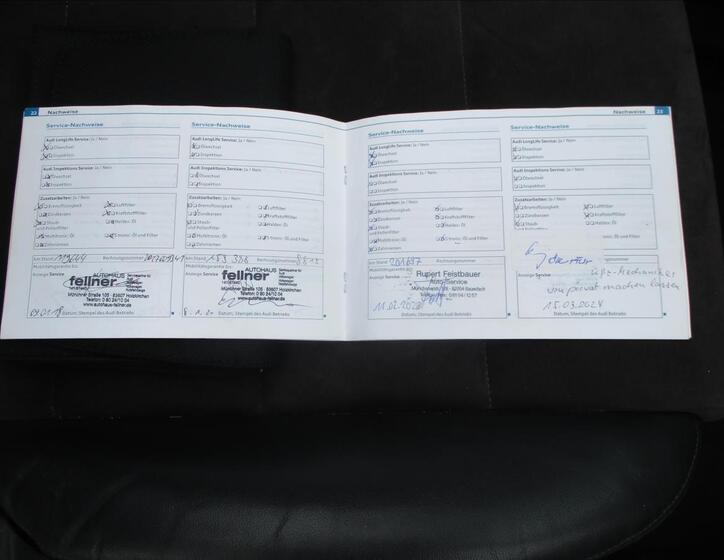 22 Nachweise
Service-Nachweise
Audi LongLife Service: Ja / Nein
Ölwechsel
Inspektion
Audi Inspektions Service: Ja / Nein
Ölwechsel
Inspektion
Zusatzarbeiten: Ja / Nein
Bremsflüssigkeit
Luftfilter
Zündkerzen
Kraftstofffilter
Staub-
und Pollenfilter
Haldex: Öl
Multitronic: Öl
S tronic: Öl und Filter
Zahnriemen
km Stand
Rechnungsnummer
Mobilitätsgarantie bis:
Anzeige Service
AUTOHAUS
fellner
Münchner Straße 105 · 83607 Holzkirchen
Telefon 0 80 24/10 04
www.autohaus-fellner.de
Datum, Stempel des Audi Betriebs
Service-Nachweise
Audi LongLife Service: Ja / Nein
Ölwechsel
Inspektion
Audi Inspektions Service: Ja / Nein
Ölwechsel
Inspektion
Zusatzarbeiten: Ja / Nein
Bremsflüssigkeit
Luftfilter
Zündkerzen
Kraftstofffilter
Staub-
und Pollenfilter
Haldex: Öl
Multitronic: Öl
S tronic: Öl und Filter
Zahnriemen
km Stand 153 386
Rechnungsnummer
Mobilitätsgarantie bis:
Anzeige Service
AUTOHAUS
fellner
Münchner Straße 105 · 83607 Holzkirchen
Telefon 0 80 24/10 04
www.autohaus-fellner.de
Datum, Stempel des Audi Betriebs
Nachweise 23
Service-Nachweise
Audi LongLife Service: Ja / Nein
Ölwechsel
Inspektion
Audi Inspektions Service: Ja / Nein
Ölwechsel
Inspektion
Zusatzarbeiten: Ja / Nein
Bremsflüssigkeit
Luftfilter
Zündkerzen
Kraftstofffilter
Staub-
und Pollenfilter
Haldex: Öl
Multitronic: Öl
S tronic: Öl und Filter
Zahnriemen
km Stand
Rechnungsnummer
Mobilitätsgarantie bis:
Anzeige Service
Rupert Feistbauer
Auto-Service
Datum, Stempel des Audi Betriebs
Service-Nachweise
Audi LongLife Service: Ja / Nein
Ölwechsel
Inspektion
Audi Inspektions Service: Ja / Nein
Ölwechsel
Inspektion
Zusatzarbeiten: Ja / Nein
Bremsflüssigkeit
Luftfilter
Zündkerzen
Kraftstofffilter
Staub-
und Pollenfilter
Haldex: Öl
Multitronic: Öl
S tronic: Öl und Filter
Zahnriemen
Rechnungsnummer
Kfz-Mechaniker
von privat machen lassen
15.03.2024
Datum, Stempel des Audi Betriebs